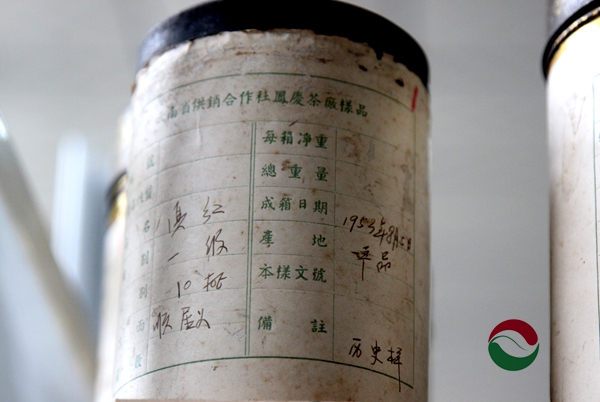 南省供銷合作社鳳慶茶廠樣品
每箱淨重
號 總重量
名 滇红 成箱日期 1953年8月5日
別 一级 產地
別 10批 本樣文號
面
備註 历史样